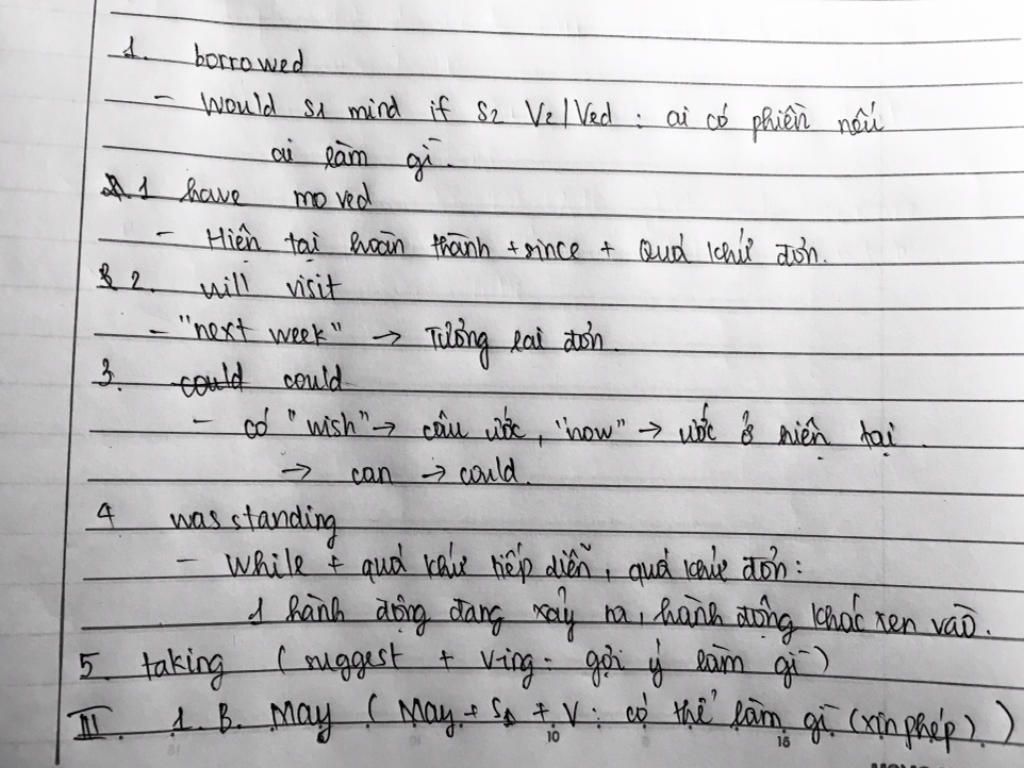 1. borrowed
- Would S1 mind if S2 V2/Ved : ai có phiền nếu
ai làm gì.
1 have moved
- Hiện tại hoàn thành + since + Quá khứ đơn.
2. will visit
- "next week" → Tương lai đơn.
3. could could
- có "wish" → câu ước, "now" → ước ở hiện tại.
→ can → could.
4 was standing
- While + quá khứ tiếp diễn, quá khứ đơn:
1 hành động đang xảy ra, hành động khác xen vào.
5. taking (suggest + V-ing: gợi ý làm gì)
III. 1. B. May (May + S + V: có thể làm gì (xin phép).)
10 15